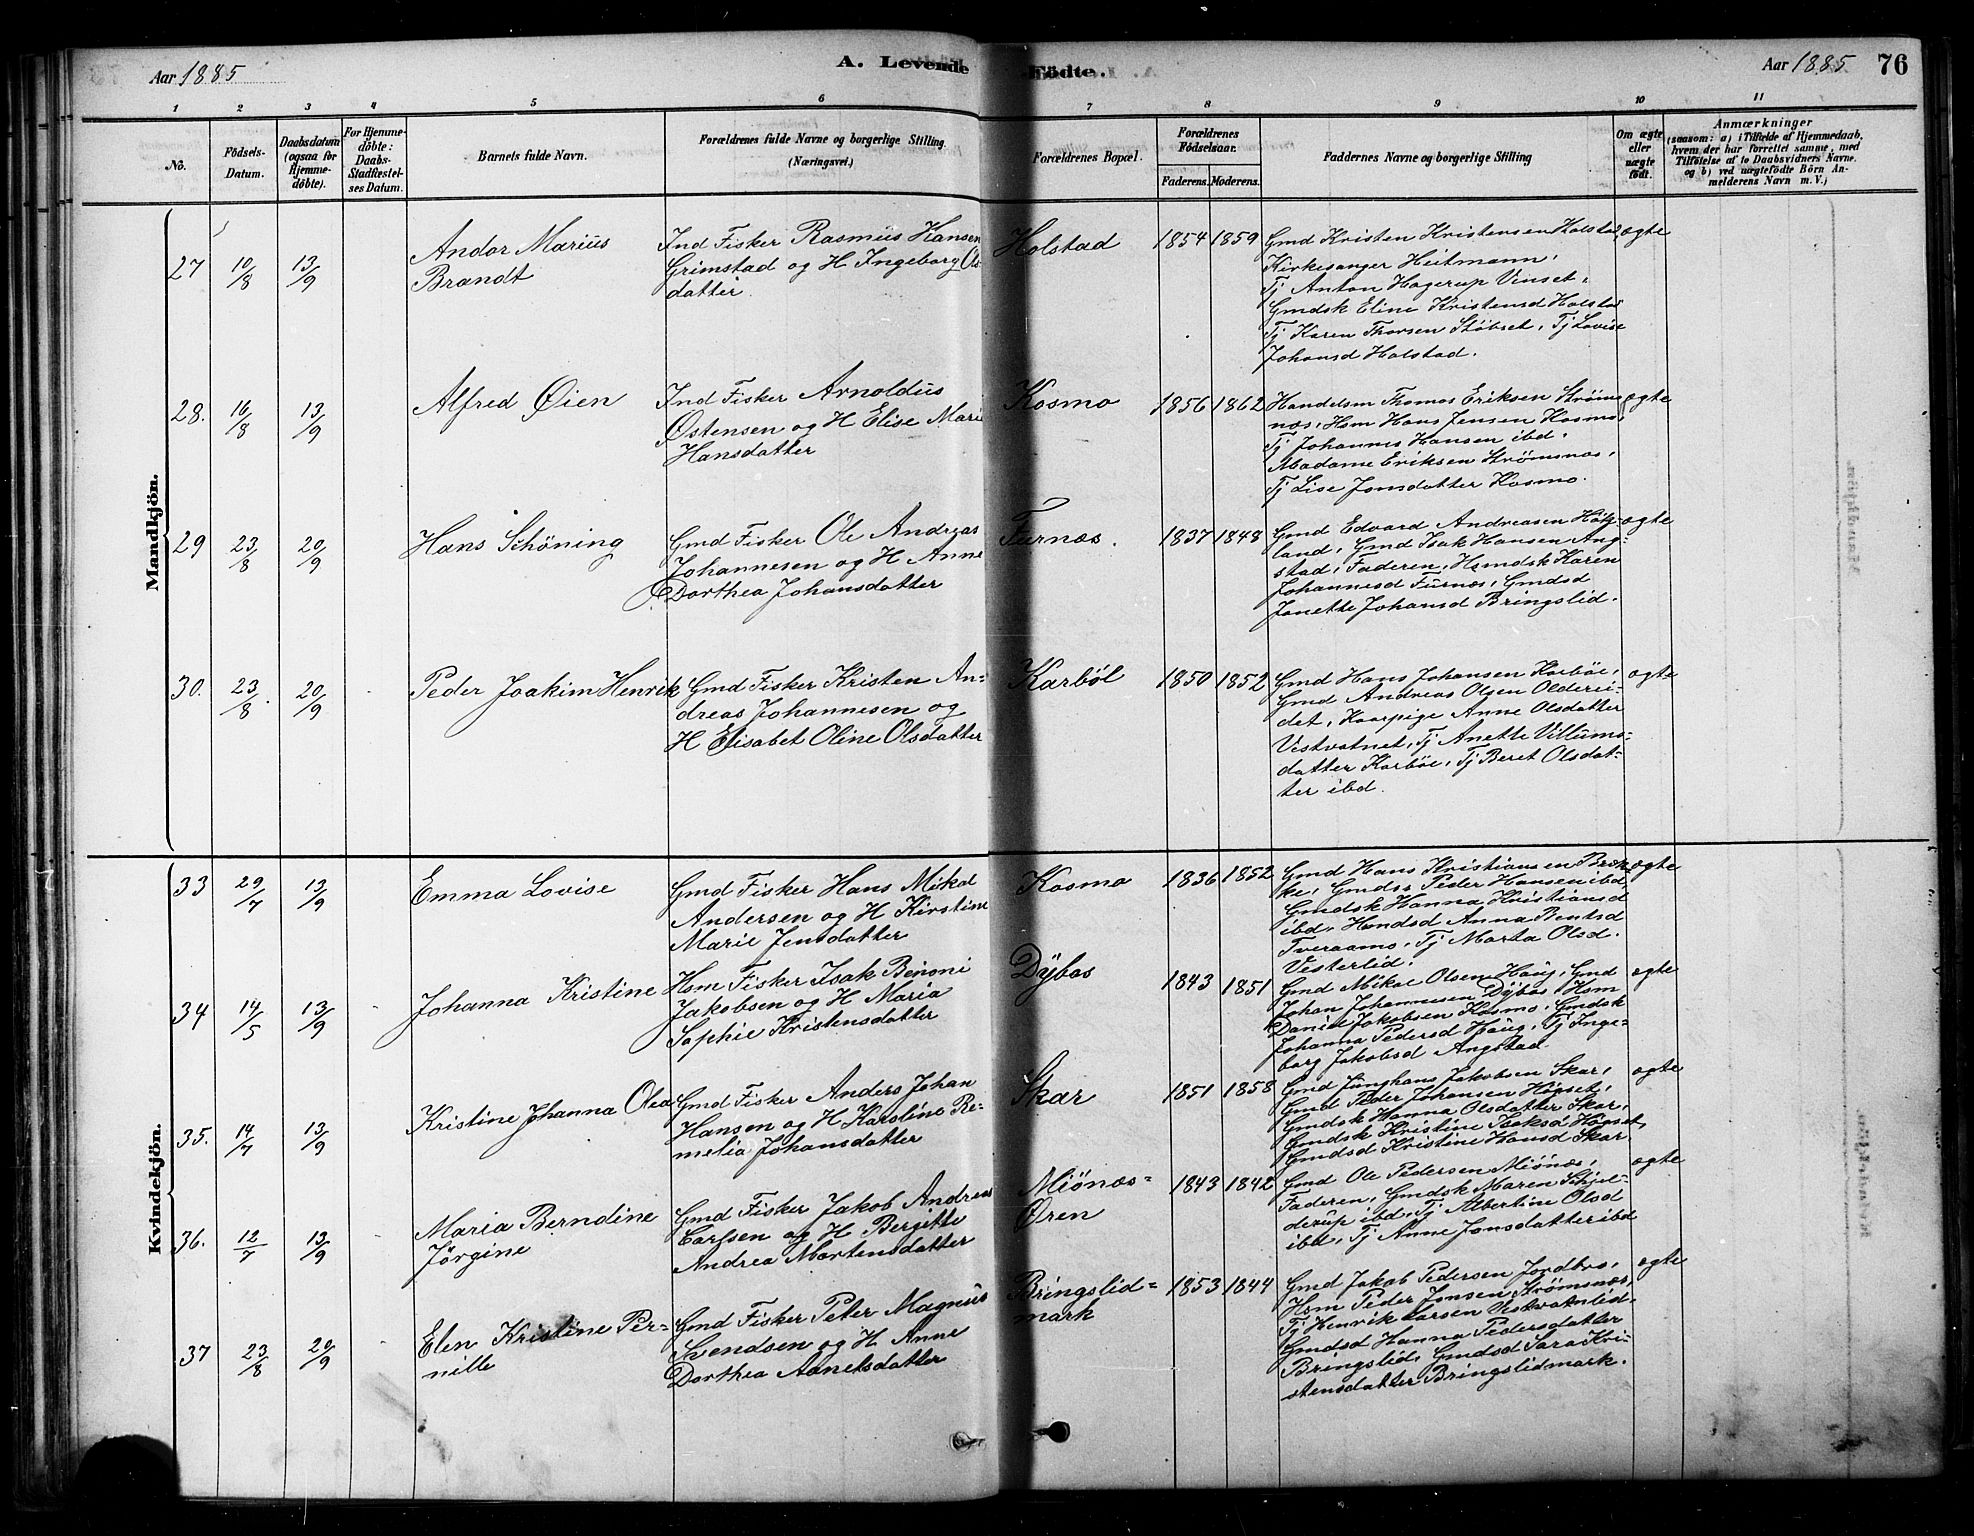 Aar 1885
A. Levende Födte.
Aar 1885
76
1 2 3 4 5 6 7 8 9 10 11
No.
Födsels-
Datum.
Daabsdatum
(ogsaa for
Hjemme-
døbte).
For Hjemme-
döbte:
Daabs-
Stadfæstel-
ses Datum.
Barnets fulde Navn.
Forældrenes fulde Navne og borgerlige Stilling
(Næringsvei.)
Forældrenes Bopæl.
Forældrenes
Födselsaar.
Faderens. Moderens.
Faddernes Navne og borgerlige Stilling
Om ægte
eller
uægte
født.
Anmærkninger
(saasom: a) i Tilfælde af Hjemmedaab,
hvem der har forrettet samme, med
Tilföielse af to Daabsvidners Navne.
og b) ved uægtefödte Börn An-
melderens Navn m. V.)
Mandkjön.
27 10/8 13/9
Andor Marius
Brandt
Ind Fisker Rasmus Hansen
Grimstad og H Ingeborg Ols-
datter.
Holstad
1854 1859
Gmd Kristen Kristensen Holstad,
Kirkesanger Heitmann,
Tj Anton Hagerup Vinset,
Gmdsk Eline Kristensd Holstad
Tj Karen Thorsen Støbset, Tj Lovise
Johansd Holstad.
ægte
28. 16/8 13/9
Alfred Øien
Ind Fisker Arnoldus
Østensen og H Elise Marie
Hansdatter
Kosmo
1856 1862
Handelsm Thomas Eriksen Strøms-
næs, Hsm Hans Jensen Kosmo,
Tj Johannes Hansen ibd,
Madame Eriksen Strømsnæs,
Tj Lise Jonsdatter Kosmo.
ægte
29 23/8 20/9
Hans Schöning
Gmd Fisker Ole Andreas
Johannesen og H Anne
Dorthea Johansdatter
Furnæs.
1837 1848
Gmd Edvard Andreasen Høg-
land, Gmd Isak Hansen Ang-
stad, Faderen, Hsmdsk Karen
Johannesd Furnæs, Gmdsd
Janette Johansd Bringslid.
ægte
30. 23/8. 20/9
Peder Joakim Henrik
Gmd Fisker Kristen An-
dreas Johannesen og
H Elisabet Oline Olsdatter
Karbøl
1850 1852
Gmd Hans Johansen Karbøl,
Gmd Andreas Olsen Olderei-
det, Kaarpige Anne Olsdatter
Vestvatnet, Tj Anette Villums-
datter Karbøl, Tj Beret Olsdat-
ter ibd.
ægte
Kvindekjön.
33 29/7 13/9
Emma Lovise
Gmd Fisker Hans Mikal
Andersen og H Kirstine
Marie Jensdatter
Kosmo
1836 1852
Gmd Hans Kristiansen Bræk-
ke, Gmdss Peder Hansen ibd
Gmdsk Hanna Kristiansd
ibd, Hsmdsd Anna Bentsd
Tveraamo, Tj Marta Olsd.
Vesterlid.
ægte
34 14/5 13/9
Johanna Kristine
Hsm Fisker Isak Benoni
Jakobsen og H Maria
Sophie Kristensdatter
Dybos
1843 1851
Gmd Mikal Olsen Haug, Gmd
Johan Johannesen Dybos, Hsm
Daniel Jakobsen Kosmo, Gmdsk
Johanna Pedersd Haug, Tj Inge-
borg Jakobsd Angstad.
ægte
35. 14/7 13/9
Kristine Johanna Olea
Gmd Fisker Anders Johan
Hansen og H Karoline Re-
melia Johansdatter
Skar
1851 1858
Gmd Junghans Jakobsen Skar,
Gmd Peder Johansen Høgset,
Gmdsk Hanna Olsdatter Skar,
Gmdsk Kristine Isaksd Høgset,
Gmdsd Kristine Hansd Skar
ægte
36. 12/7 13/9
Maria Berndine
Jörgine
Gmd Fisker Jakob Andreas
Carlsen og H Bergitte
Andrea Mortensdatter
Miönæs-
Øren
1843 1842
Gmd Ole Pedersen Miönæs,
Faderen, Gmdsk Maren Schjel-
derup ibd, Tj Albertine Olsd
ibd, Tj Anne Jonsdatter ibd
ægte
37 23/8 20/9
Elen Kristine Per-
nille
Gmd Fisker Peter Magnus
Svendsen og H Anne
Dorthea Abnetsdatter
Bringslid-
mark
1853 1844
Gmd Jakob Pedersen Jordbro,
Hsm Peder Jonsen Strømsnæs,
Tj Henrik Larsen Vestvatnlid
Gmdsd Hanna Pedersdatter
Bringslid, Gmdsd Sara Kri-
stensdatter Bringslidmark.
ægte